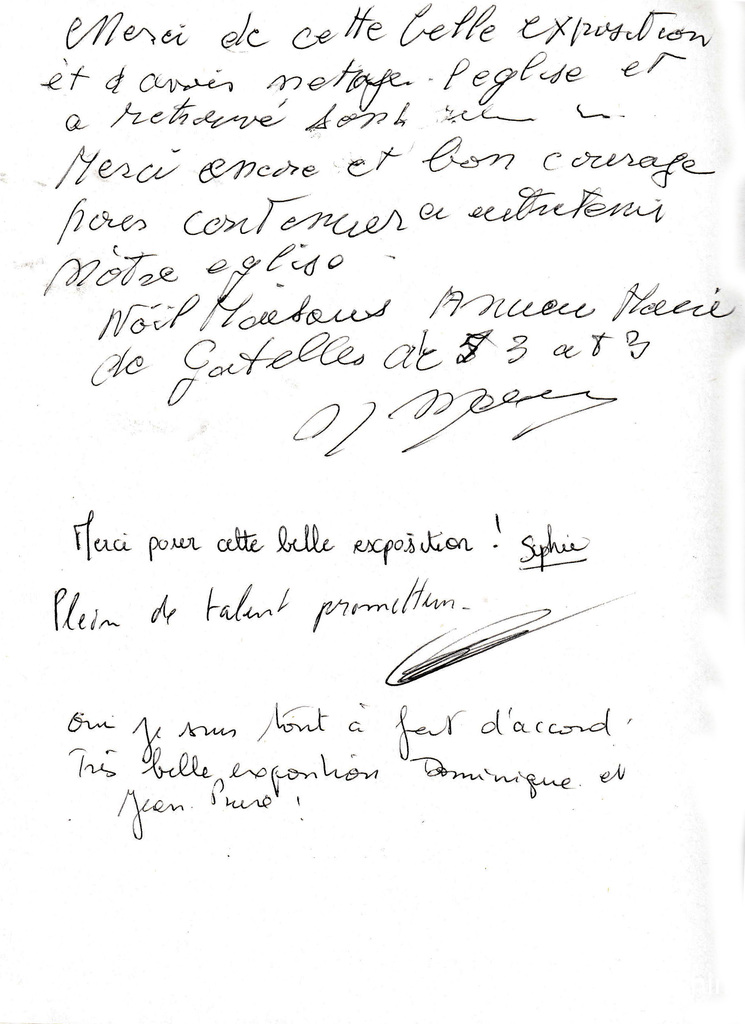 Merci de cette belle exposition
èt d avoir netoye l'eglise et
a retrouvé sont
Merci encore et bon courage
pour continuer a entretenir
nôtre eglise
Noël Ancien Maire
de Gatelles de 3 a 3
Merci pour cette belle exposition ! Sophie
Plein de talent
Oui je suis tout à fait d'accord.
Très belle exposition Dominique et
Jean Pierre !